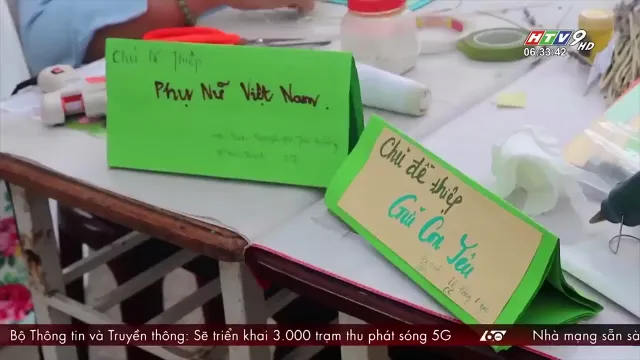 HTV9 HD
06:33:42
Chủ đề Thiệp
Phụ Nữ Việt Nam.
Chủ đề thiệp
Gửi Con Yêu
Bộ Thông tin và Truyền thông: Sẽ triển khai 3.000 trạm thu phát sóng 5G
60
Nhà mạng sẵn sà